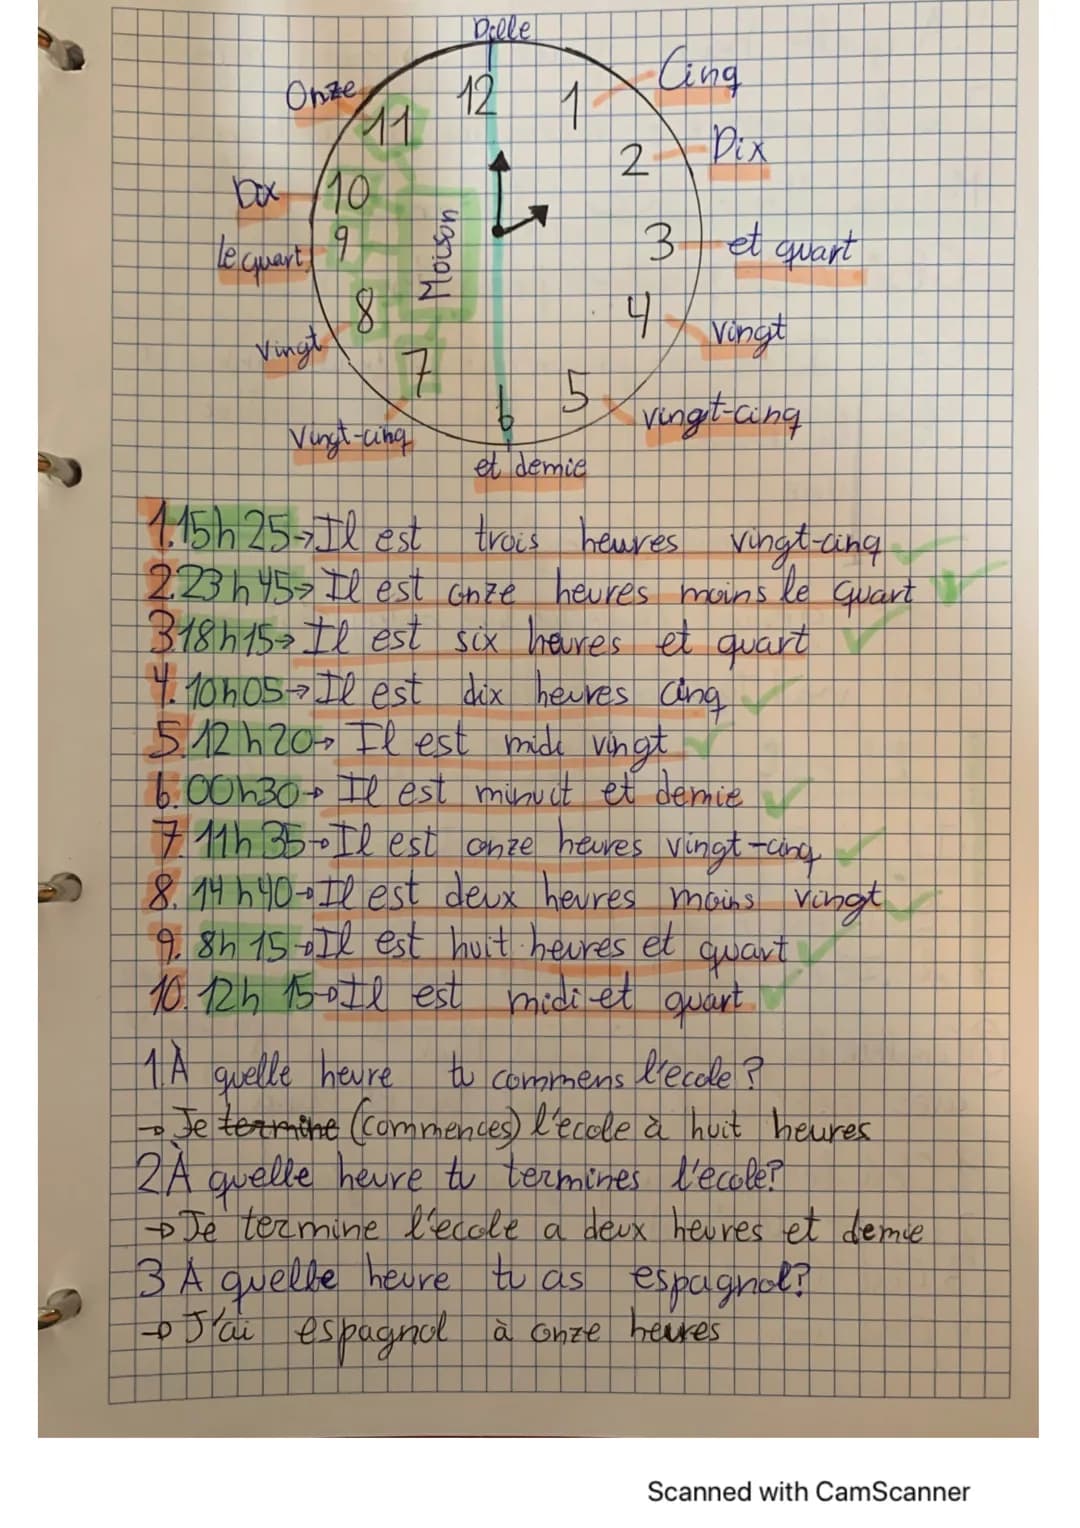 Pille
Onze
Cinq
12
1
11
Dix
2
Dix
10
Moison
et quart
3
9
le quart
8
4
Vingt
Vingt
7
5
6
vingt-cinq
Vingt-cinq
et demie
1. 15h 25→Il est trois heures vingt-cinq
2. 23 h 45→ Il est onze heures moins le quart
3. 18h15→ Il est six heures et quart
4. 10h05→Il est dix heures cinq
5. 12h20→ Il est midi vingt
6. 00h30→ Il est minuit et demie
7. 11h 35→Il est onze heures vingt-cinq
8. 14 h40→Il est deux heures moins vingt
9. 8h 15→Il est huit heures et quart
10. 12h 15→Il est midi et quart
1 À quelle heure tu commens l'ecole?
→ Je termine (commences) l'ecole à huit heures
2 À quelle heure tu termines l'ecole?
→ Je termine l'ecole a deux heures et demie
3 A quelle heure tu as espagnol?
→ J'ai espagnol à onze heures
Scanned with CamScanner